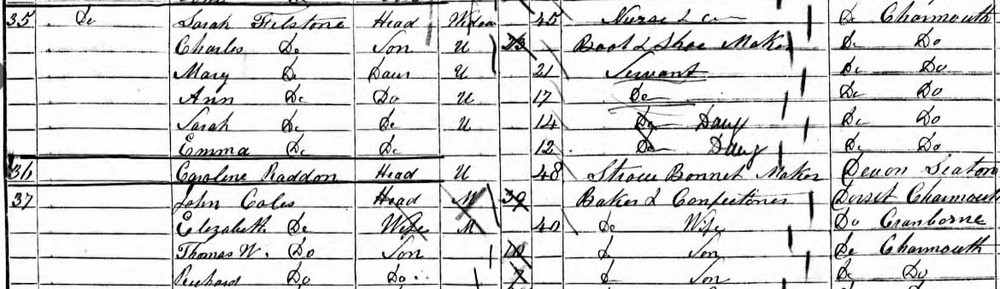 35 Do Sarah Filstone Head Widow 45 Nurse Do Charmouth
Charles Do Son U 23 Boot & Shoe Maker Do Do
Mary Do Daur U 21 Servant Do Do
Ann Do Do U 17 Do Do Do
Sarah Do Do U 14 Do Do Do
Emma Do Do 12 Do Do Do
36 Caroline Raddon Head U 48 Straw Bonnet Maker Devon Seaton
37 John Coles Head M 39 Baker & Confectioner Dorset Charmouth
Elizabeth Do Wife M 40 Do Wife Do Cranborne
Thomas W. Do Son 10 Do Son Do Charmouth
Richard Do Do 7 Do Son Do Do